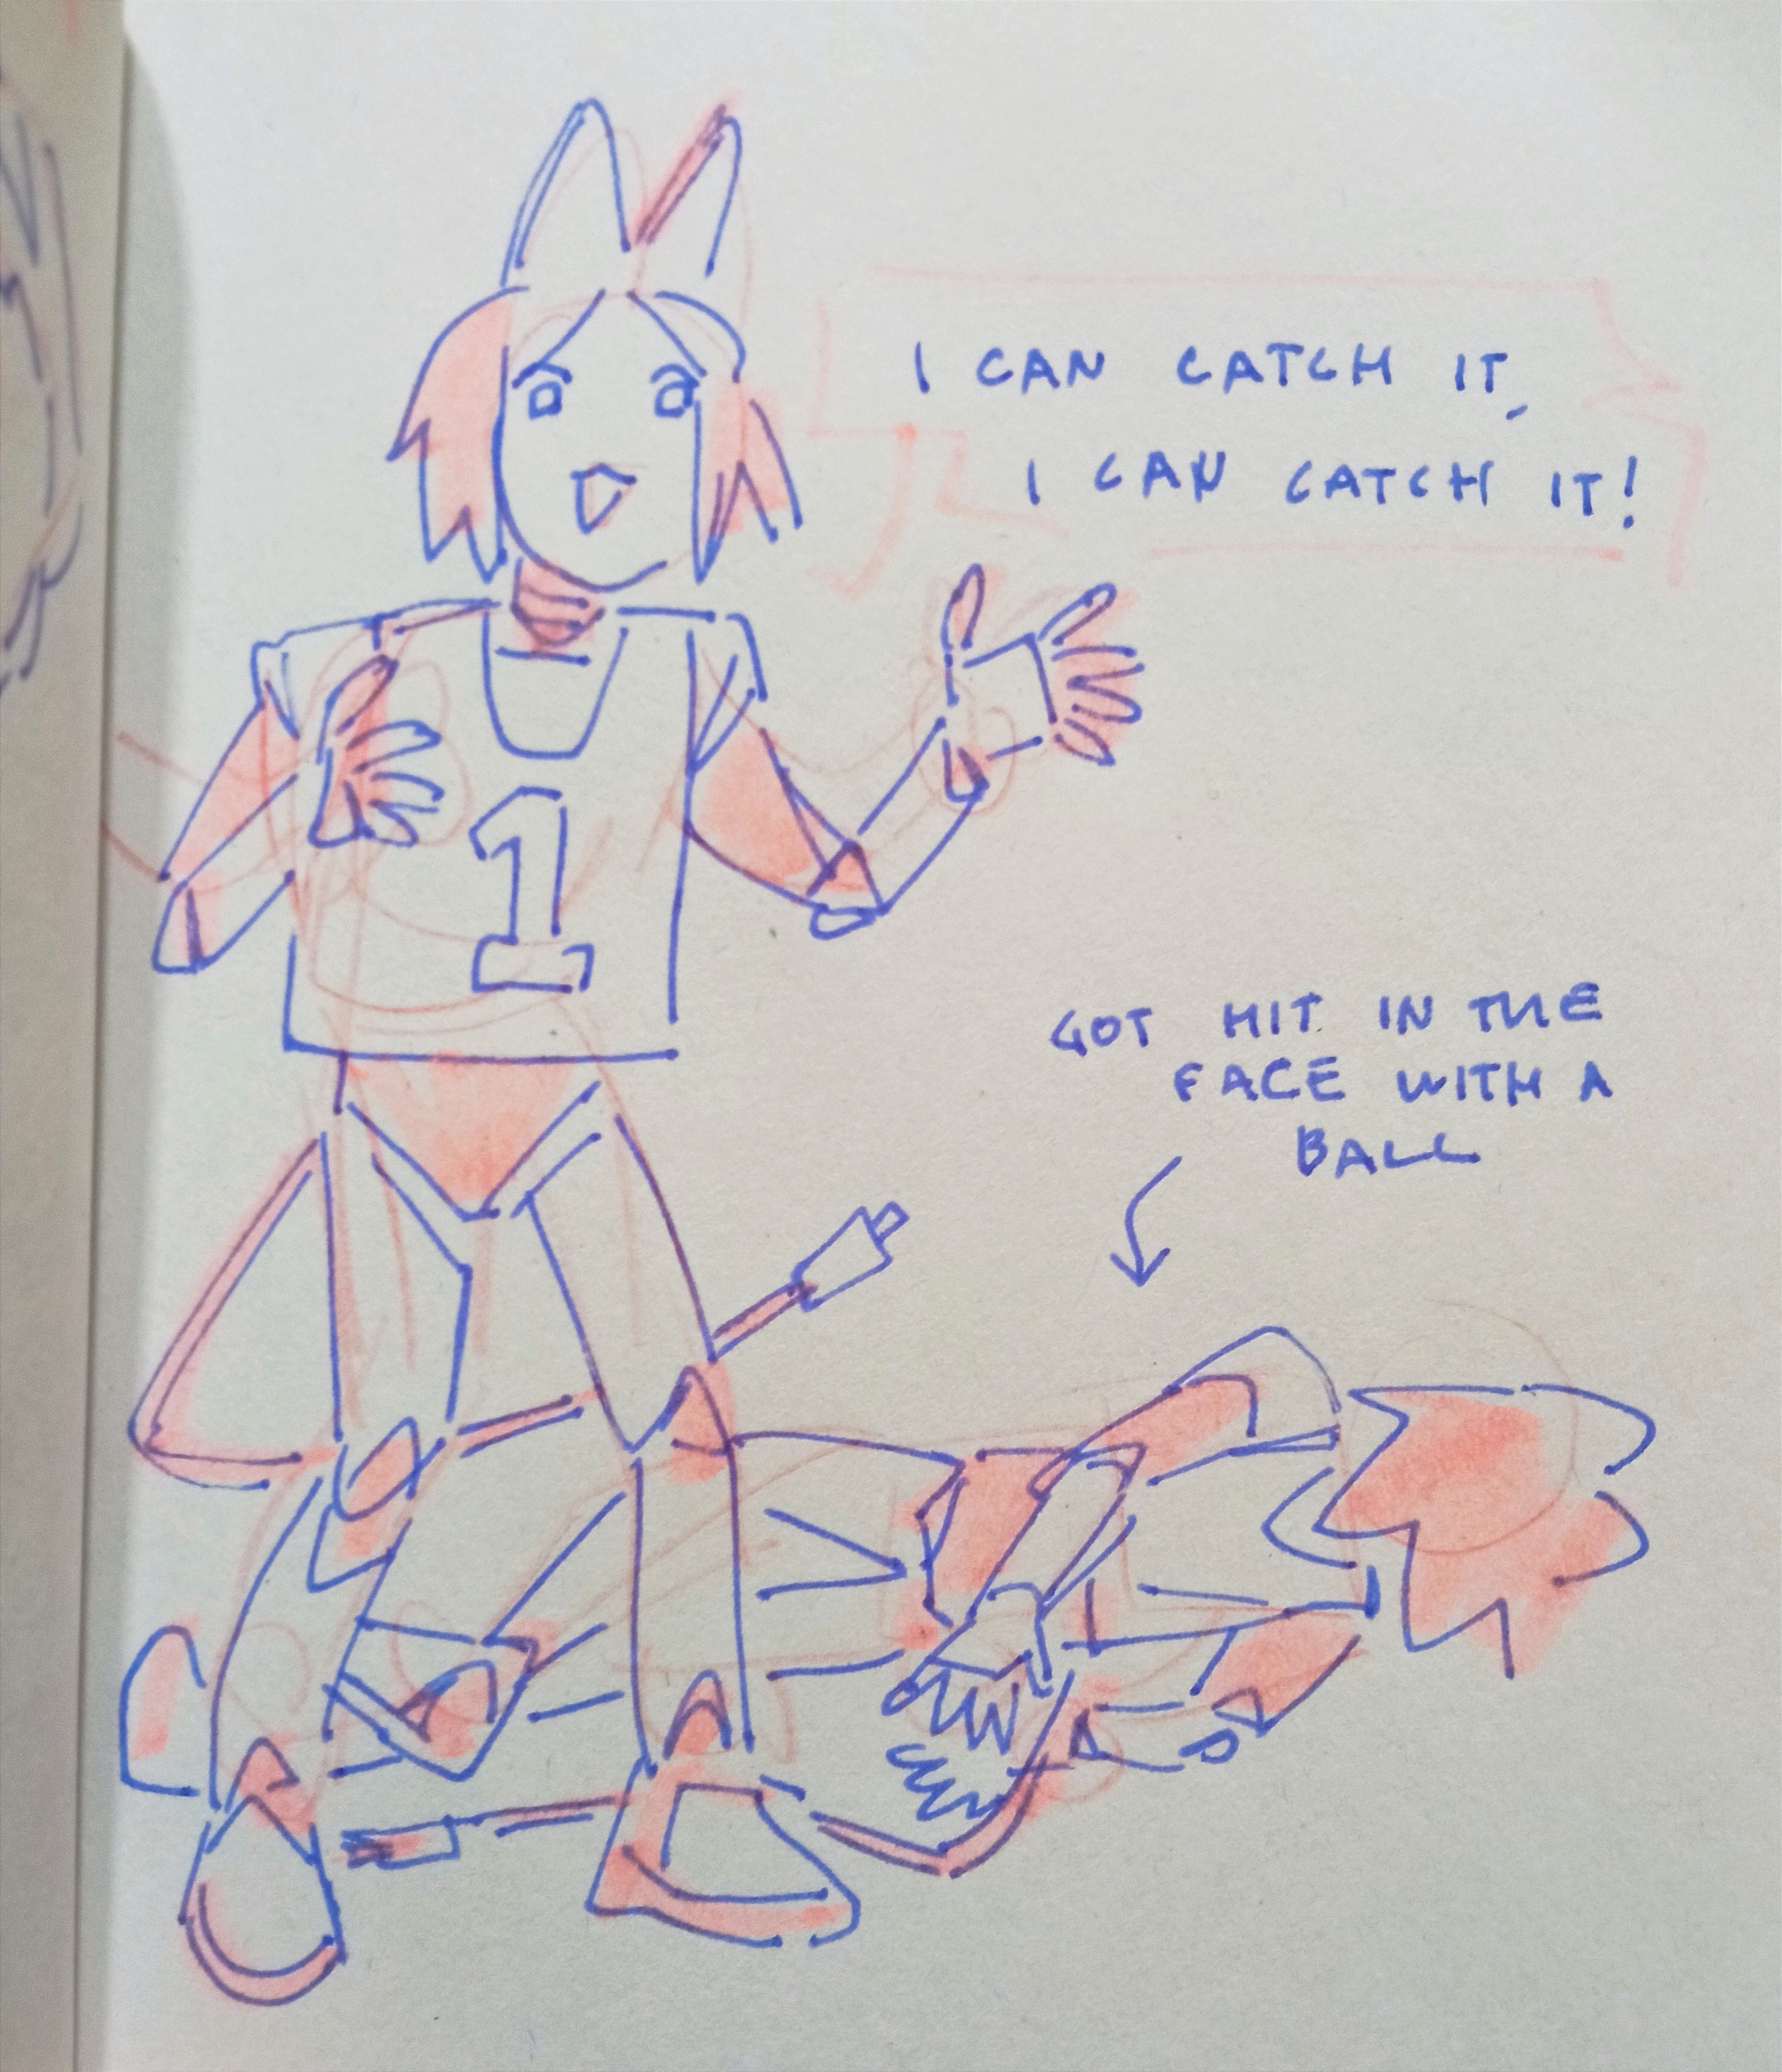 I CAN CATCH IT,
I CAN CATCH IT!
1
GOT HIT IN THE
FACE WITH A
BALL